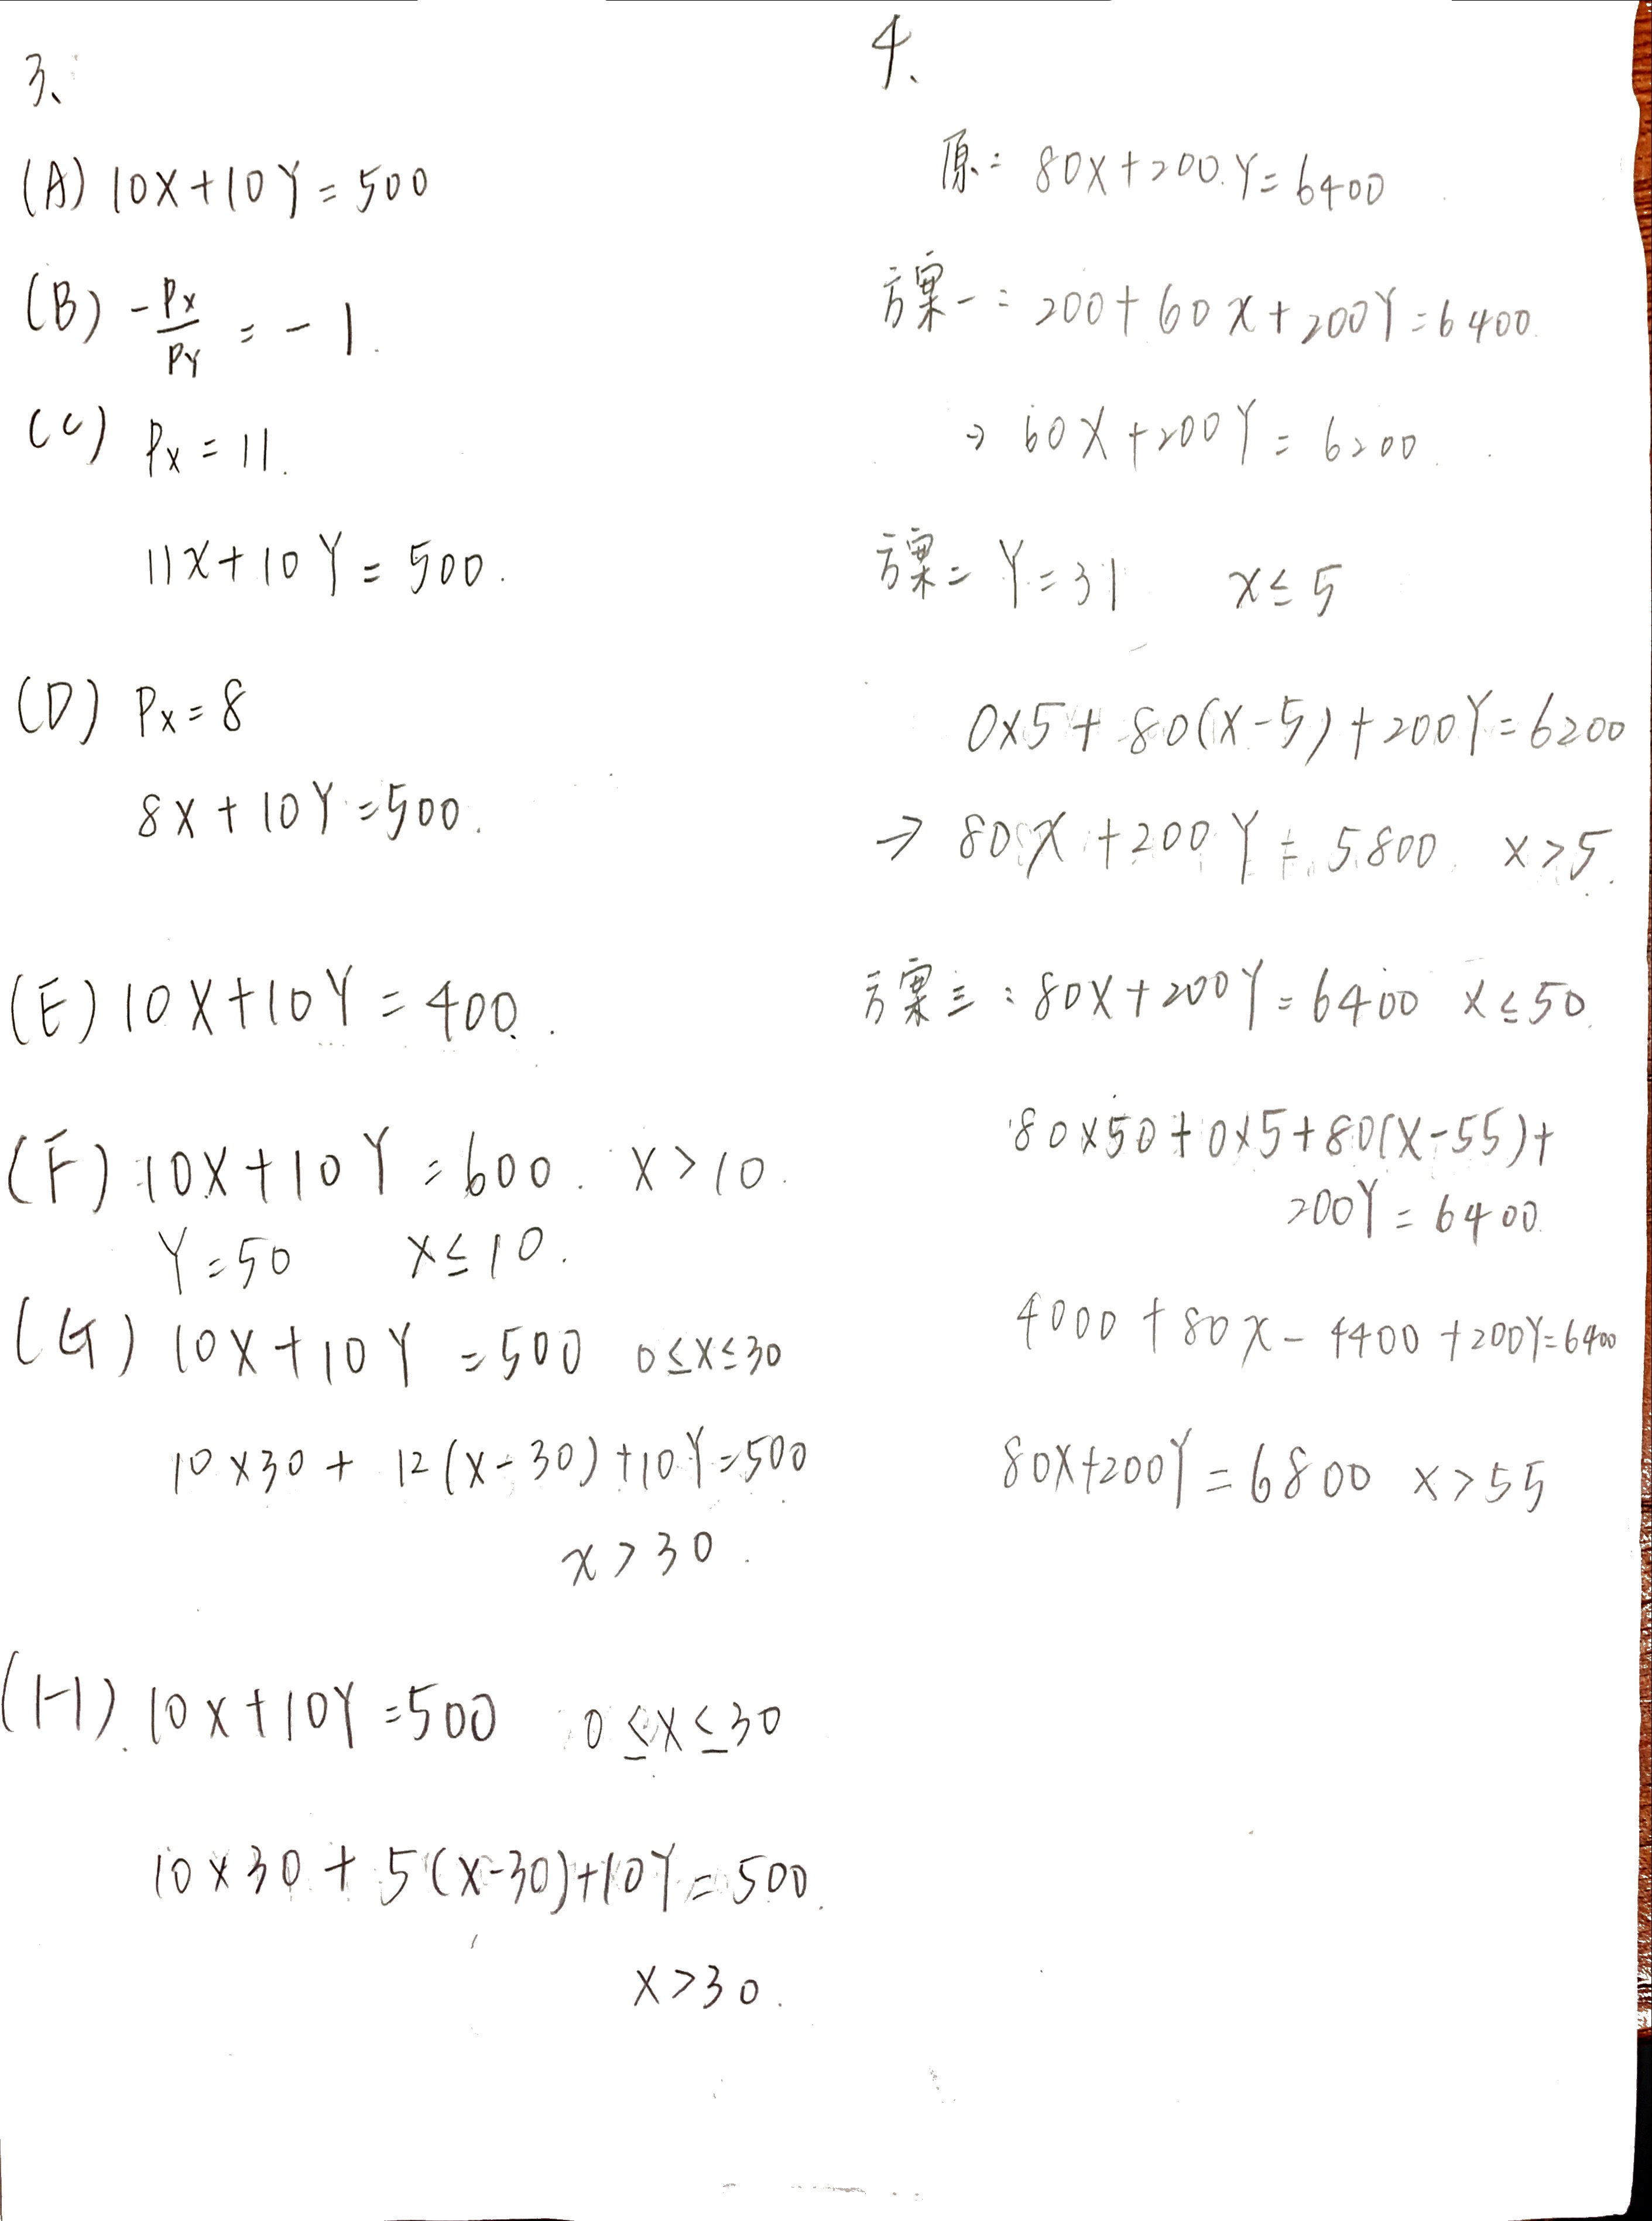 3、
(A) 10X+10Y=500
(B) -Px/PY = -1.
(C) Px=11.
11X+10Y=500.
(D) Px=8
8X+10Y=500.
(E) 10X+10Y=400.
(F) 10X+10Y=600. X>10.
Y=50 X≤10.
(G) 10X+10Y=500 0≤X≤30
10×30+12(X-30)+10Y=500
X>30.
(H) 10X+10Y=500 0≤X≤30
10×30+5(X-30)+10Y=500.
X>30.
4、
原：80X+200Y=6400
方案一：200+60X+200Y=6400.
⇒ 60X+200Y=6200.
方案二 Y=31 X≤5
0×5+80(X-5)+200Y=6200
→ 80X+200Y=5800 X>5.
方案三：80X+200Y=6400 X≤50.
80×50+0×5+80(X-55)+
200Y=6400.
4000+80X-4400+200Y=6400
80X+200Y=6800 X>55